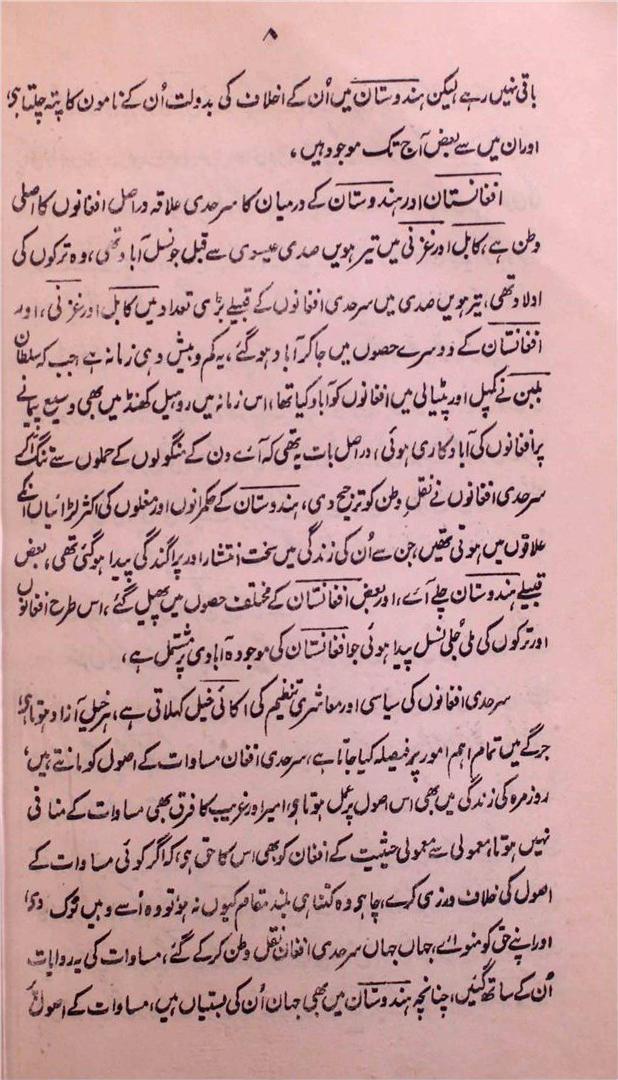 ۸
باقی نہیں رہے لیکن ہندوستان میں اُن کے اخلاف کی بدولت اُن کے ناموں کا پتہ چلتا ہی،
اور ان میں سے بعض آج تک موجود ہیں،
افغانستان اور ہندوستان کے درمیان کا سرحدی علاقہ دراصل افغانوں کا اصلی
وطن ہے، کابل اور غزنی میں تیرہویں صدی عیسوی سے قبل جو نسل آباد تھی، وہ ترکوں کی
اولاد تھی، تیرہویں صدی میں سرحدی افغانوں کے قبیلے بڑی تعداد میں کابل اور غزنی، اور
افغانستان کے دوسرے حصوں میں جا کر آباد ہو گئے، یہ کم و بیش وہی زمانہ ہے جب کہ سلطان
بلبن نے کمپل اور پٹیالی میں افغانوں کو آباد کیا تھا، اس زمانہ میں روہیل کھنڈ میں بھی وسیع پیمانے
پر افغانوں کی آبادکاری ہوئی، دراصل بات یہ تھی کہ آے دن کے منگولوں کے حملوں سے تنگ آکے
سرحدی افغانوں نے نقلِ وطن کو ترجیح دی، ہندوستان کے حکمرانوں اور مغلوں کی اکثر لڑائیاں انکے
علاقوں میں ہوتی تھیں، جن سے اُن کی زندگی میں سخت انتشار اور پراگندگی پیدا ہو گئی تھی، بعض
قبیلے ہندوستان چلے آے، اور بعض افغانستان کے مختلف حصوں میں پھیل گئے، اس طرح افغانوں
اور ترکوں کی ملی جُلی نسل پیدا ہوئی جو افغانستان کی موجودہ آبادی پر مشتمل ہے،
سرحدی افغانوں کی سیاسی اور معاشری تنظیم کی اکائی خیل کہلاتی ہے، ہر خیل آزاد ہوتا ہی،
جرگے میں تمام اہم امور پر فیصلہ کیا جاتا ہے، سرحدی افغان مساوات کے اصول کو مانتے ہیں،
روزمرہ کی زندگی میں بھی اس اصول پر عمل ہوتا ہی، امیر اور غریب کا فرق بھی مساوات کے منافی
نہیں ہوتا، معمولی سے معمولی حیثیت کے افغان کو بھی اس کا حق ہی، کہ اگر کوئی مساوات کے
اصول کی خلاف ورزی کرے، چاہی وہ کتنا ہی بلند مقام کیوں نہ ہو، تو وہ اُسے وہیں ٹوک دی،
اور اپنے حق کو منوائے، جہاں جہاں سرحدی افغان نقلِ وطن کر کے گئے، مساوات کی یہ روایات
اُن کے ساتھ گئیں، چنانچہ ہندوستان میں بھی جہاں اُن کی بستیاں ہیں، مساوات کے اصول